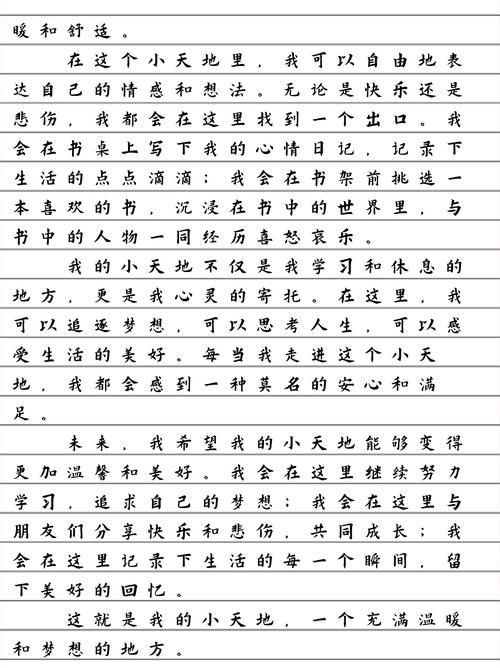 暖和舒适。
在这个小天地里，我可以自由地表
达自己的情感和想法。无论是快乐还是
悲伤，我都会在这里找到一个出口。我
会在书桌上写下我的心情日记，记录下
生活的点点滴滴；我会在书架前挑选一
本喜欢的书，沉浸在书中的世界里，与
书中的人物一同经历喜怒哀乐。
我的小天地不仅是我学习和休息的
地方，更是我心灵的寄托。在这里，我
可以追逐梦想，可以思考人生，可以感
受生活的美好。每当我走进这个小天
地，我都会感到一种莫名的安心和满
足。
未来，我希望我的小天地能够变得
更加温馨和美好。我会在这里继续努力
学习，追求自己的梦想；我会在这里与
朋友们分享快乐和悲伤，共同成长；我
会在这里记录下生活的每一个瞬间，留
下美好的回忆。
这就是我的小天地，一个充满温暖
和梦想的地方。